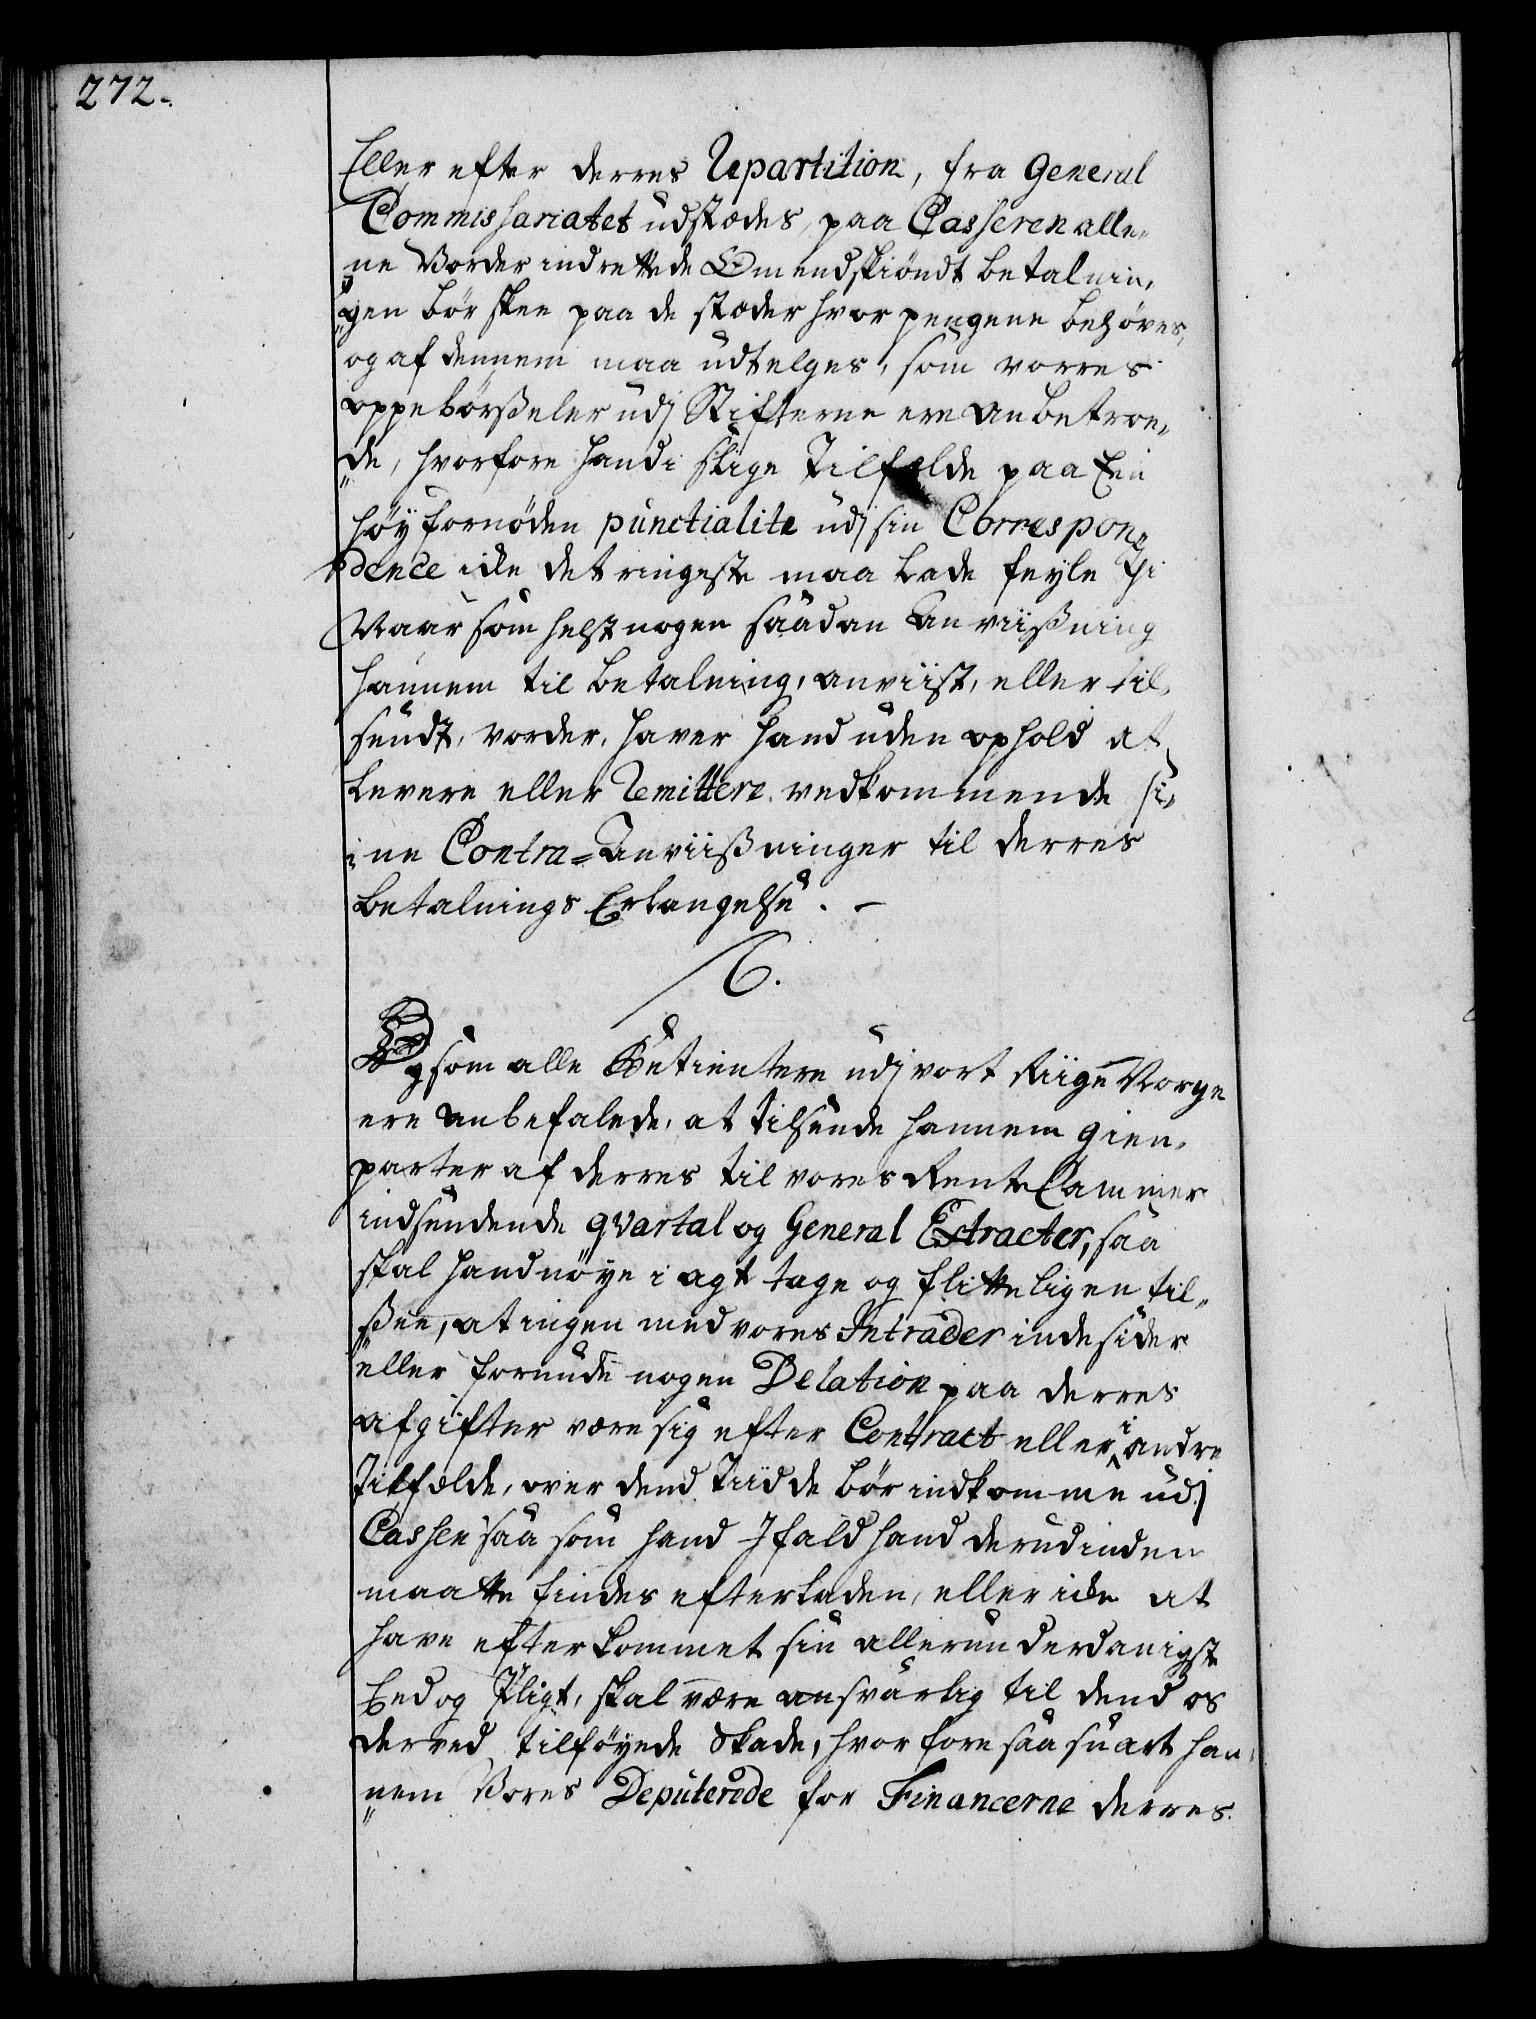 272.
Eller efter derres Repartition, fra General
Commissariatet udstædes, paa Casseren alle,,
,,ne Vorder indrettede Omendskiöndt betalnin,,
,,gen bör skee paa de stæder hvor pengene behöves,
og af dennem maa udtelges, som vorres
oppebörßeler udj Stifterne ere Anbetroe,,
,,de, hvorfore hand i slige Tilfælde paa Een
höyfornöden punctialite udj sin Correspon,,
,,dence icke det ringeste maa lade feyle Thi
Naar som helst nogen saadan Anviißning
hannem til betalning, anviist, eller til,,
sendt, vorder, haver hand uden ophold at
levere eller Remittere vedkommende si,,
,,ne Contra=Anviißninger til derres
betalnings Erlangelse. –
6.
Og som alle Betientere udj vort Riige Norge
ere Anbefalede, at tilsende hannem gien,,
parter af derres til vores Rente Cammer
indsendende qvartal og General Extracter, saa
skal hand nöye i agt tage og flitteligen til,,
,,ßee, at ingen med vores Intrader indesider
eller forunde nogen Delation paa derres
afgifter være sig efter Contract eller i andre
Tilfælde, over dend Tiid de bör indkomme udj
Cassen saa som hand Ifald hand derudinden
maatte findes efterladen, eller icke at
have efterkommet sin allerunderdanigst
Eed og Pligt, skal være ansvarlig til dend os
derved tilföyede Skade, hvorfore saa snart han,,
,,nem Vores Deputerede for Financerne derres